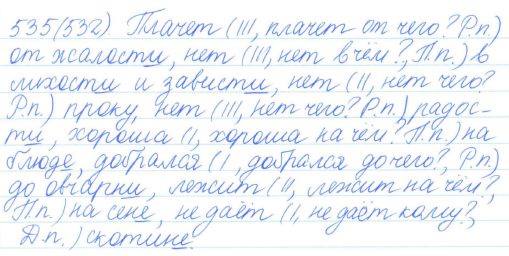 535(532) Плачет (III, плачет от чего? Р.п.)
от жалости, нет (III, нет в чём?, П.п.) в
лихости и зависти, нет (II, нет чего?
Р.п.) проку, нет (III, нет чего? Р.п.) радос-
ти, хороша (I, хороша на чём? П.п.) на
блюде, добрался (I, добрался до чего?, Р.п.)
до овчарни, лежит (II, лежит на чём?,
П.п.) на сене, не даёт (I, не даёт кому?,
Д.п.) скотине.